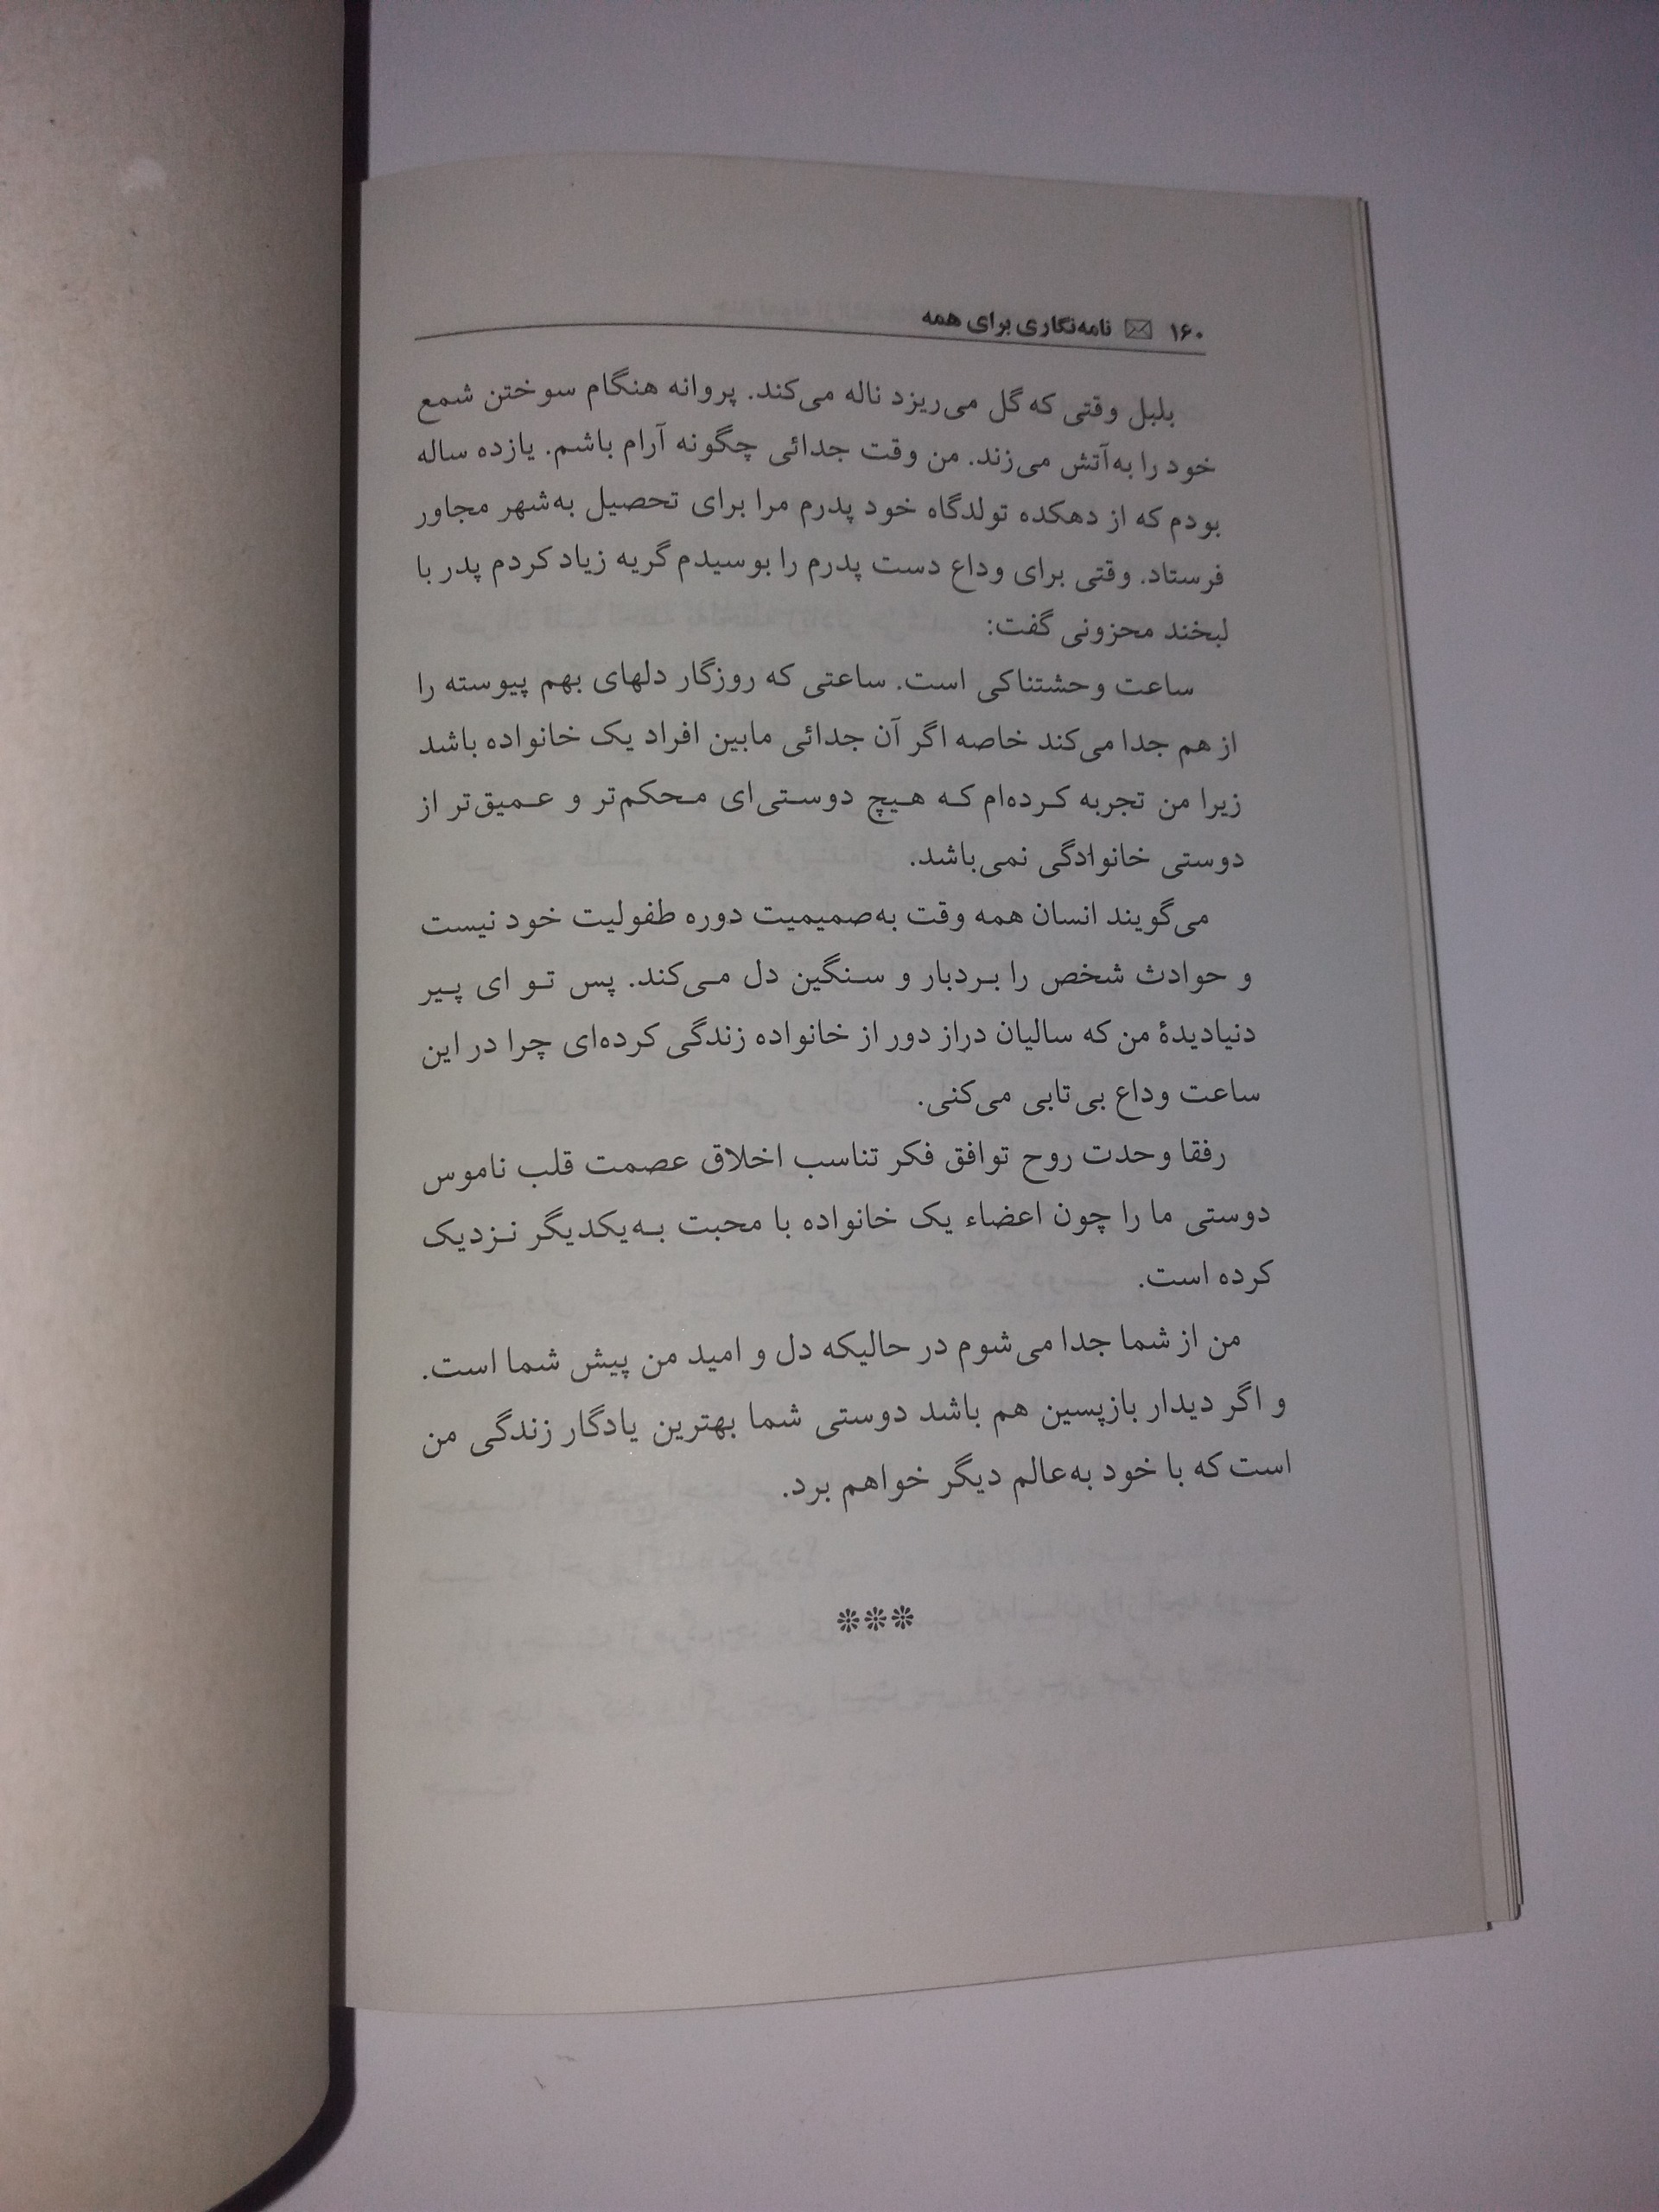 ۱۶۰ نامه‌نگاری برای همه
بلبل وقتی که گل می‌ریزد ناله می‌کند. پروانه هنگام سوختن شمع
خود را به‌آتش می‌زند. من وقت جدائی چگونه آرام باشم. یازده ساله
بودم که از دهکده تولدگاه خود پدرم مرا برای تحصیل به‌شهر مجاور
فرستاد. وقتی برای وداع دست پدرم را بوسیدم گریه زیاد کردم پدر با
لبخند محزونی گفت:
ساعت وحشتناکی است. ساعتی که روزگار دلهای بهم پیوسته را
از هم جدا می‌کند خاصه اگر آن جدائی مابین افراد یک خانواده باشد
زیرا من تجربه کرده‌ام که هیچ دوستی‌ای محکم‌تر و عمیق‌تر از
دوستی خانوادگی نمی‌باشد.
می‌گویند انسان همه وقت به‌صمیمیت دوره طفولیت خود نیست
و حوادث شخص را بردبار و سنگین دل می‌کند. پس تو ای پیر
دنیادیدۀ من که سالیان دراز دور از خانواده زندگی کرده‌ای چرا در این
ساعت وداع بی‌تابی می‌کنی.
رفقا وحدت روح توافق فکر تناسب اخلاق عصمت قلب ناموس
دوستی ما را چون اعضاء یک خانواده با محبت به‌یکدیگر نزدیک
کرده است.
من از شما جدا می‌شوم در حالیکه دل و امید من پیش شما است.
و اگر دیدار بازپسین هم باشد دوستی شما بهترین یادگار زندگی من
است که با خود به‌عالم دیگر خواهم برد.
❊❊❊